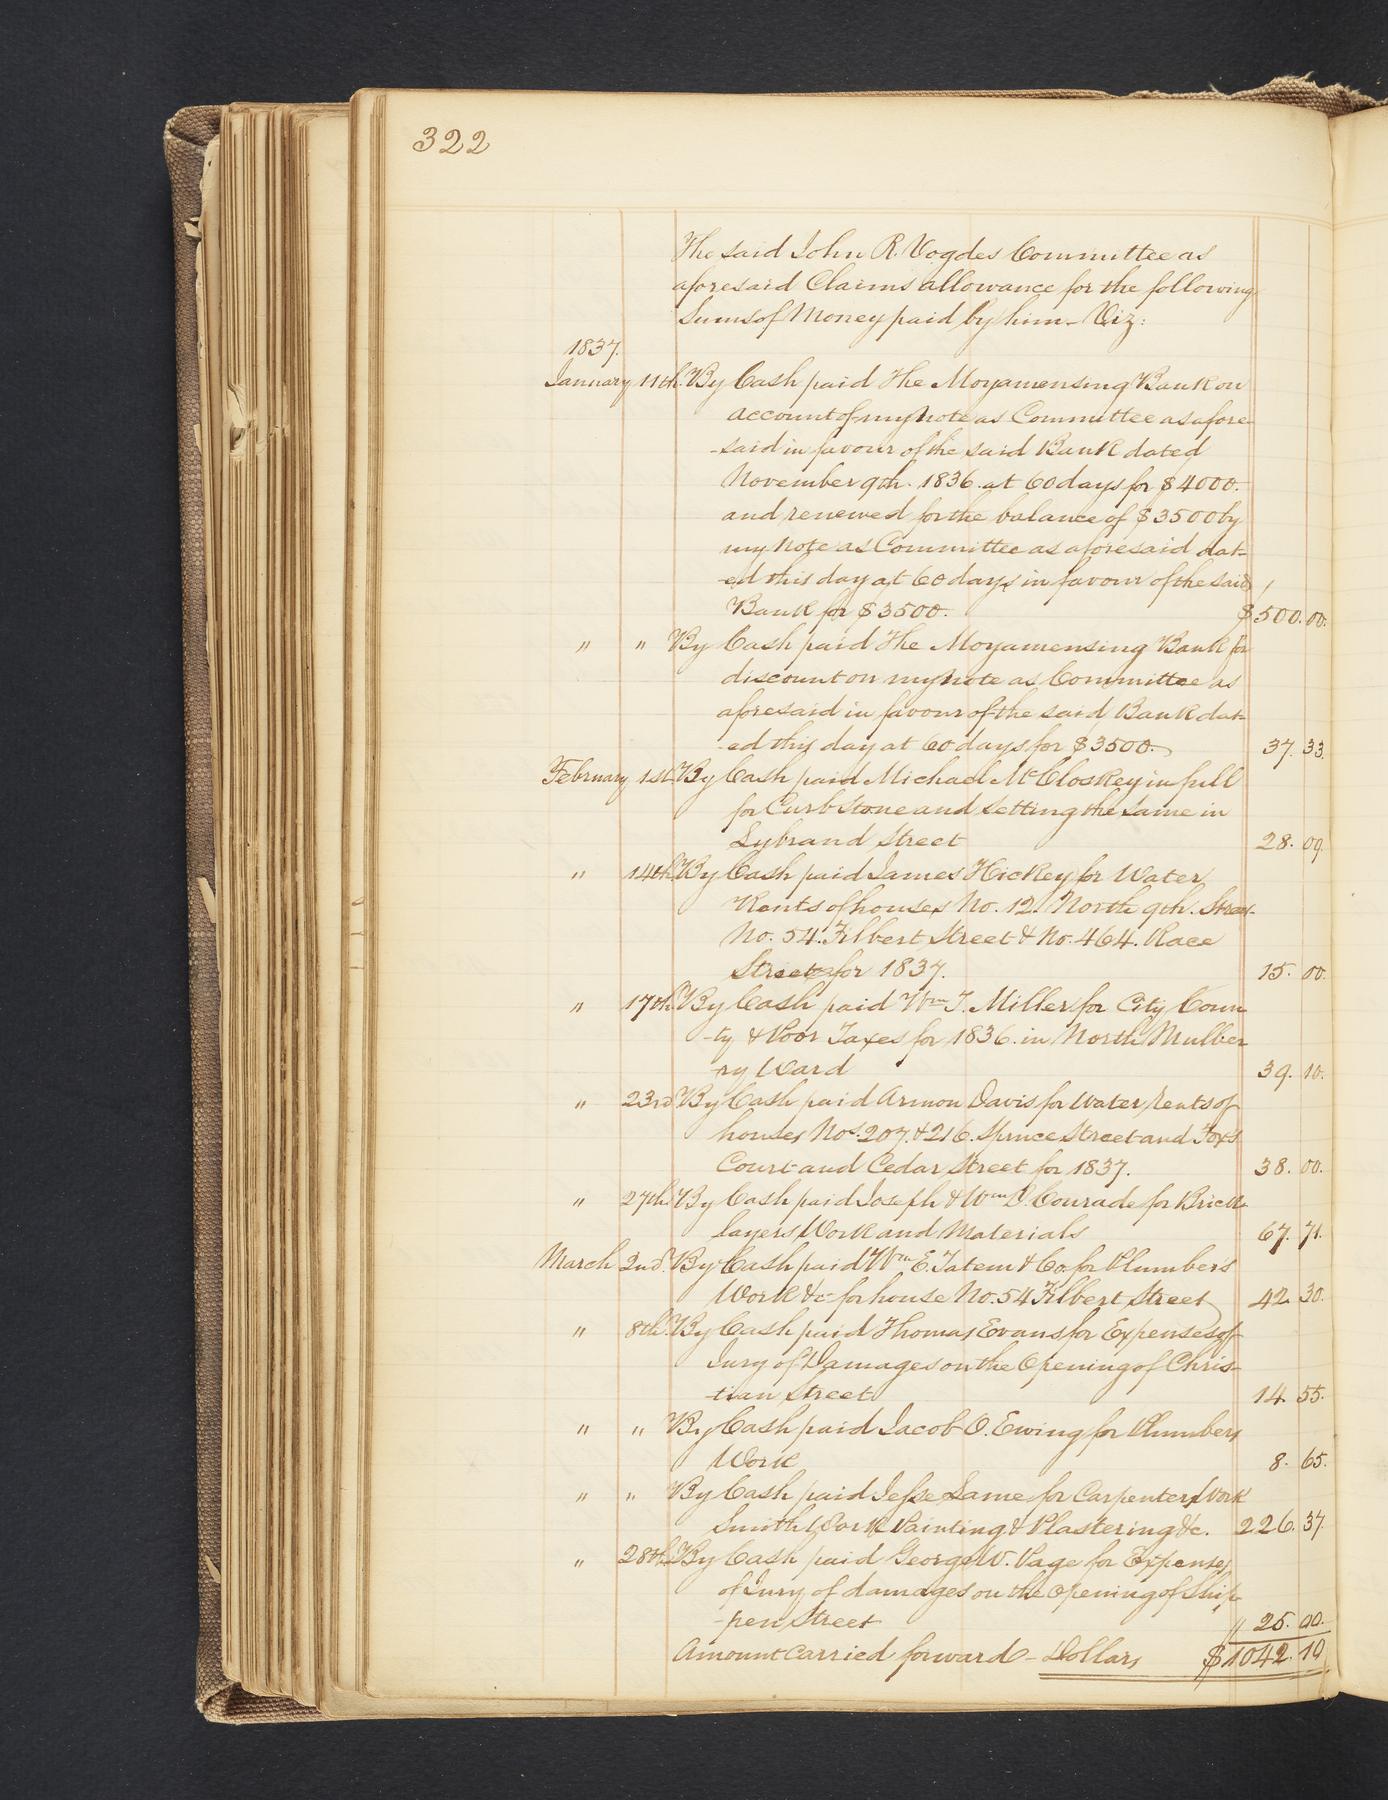 322
The said John R. Vogdes Committee as
aforesaid Claims allowance for the following
Sums of Money paid by him - Viz:
1837.
January 11th. By Cash paid The Moyamensing Bank on
account of my note as Committee as afore-
-said in favour of the said Bank dated
November 9th. 1836. at 60 days for $4000.
and renewed for the balance of $3500 by
my Note as Committee as aforesaid dat-
-ed this day at 60 days in favour of the said
Bank for $3500. $500. 00.
" " By Cash paid The Moyamensing Bank for
discount on my note as Committee as
aforesaid in favour of the said Bank dat-
-ed this day at 60 days for $3500. 37. 33.
February 1st. By Cash paid Michael McCloskey in full
for Curb Stone and setting the same in
Lybrand Street 28. 09.
" 14th By Cash paid James Hickey for Water
Rents of houses No. 12. North 9th. Street
No. 54. Filbert Street & No. 464. Race
Street for 1837. 15. 00.
" 17th. By Cash paid Wm T. Miller for City Coun
-ty & Poor Taxes for 1836. in North Mulber
ry Ward 39. 10.
" 23rd By Cash paid Armon Davis for Water rents of
houses Nos. 207. & 216. Spruce Street and Fox's
Court and Cedar Street for 1837. 38. 00.
" 27th. By Cash paid Joseph & Wm D. Conrade for Brick
layers Work and Materials 67. 71.
March 2nd. By Cash paid Wm E. Tatem & Co. for Plumber's
Work &c for house No. 54 Filbert Street 42. 30.
" 8th. By Cash paid Thomas Evans for Expenses of
Jury of Damages on the Opening of Chris-
-tian Street 14. 55.
" " By Cash paid Jacob O. Ewing for Plumbers
Work 8. 65.
" " By Cash paid Jesse Lame for Carpenters Work
Smith Work Painting & Plastering &c. 226. 37.
" 28th. By Cash paid George W. Page for Expenses
of Jury of damages on the opening of Ship-
-pen Street " 25. 00.
Amount carried forward - Dollars $1042. 10